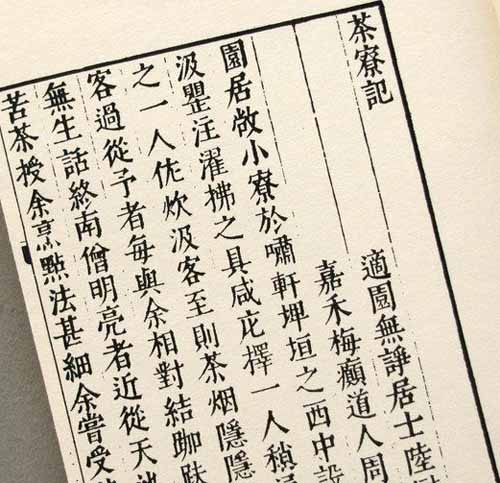 茶寮記
適園無諍居士陸
嘉禾梅癲道人周
園居敞小寮於嘯軒埤垣之西中設
汲罌注濯拂之具咸庀擇一人稍
之一人佐炊汲客至則茶烟隱隱
客過從予者每與余相對結跏趺
無生話終南僧明亮者近從天池
苦茶授余烹點法甚細余嘗受